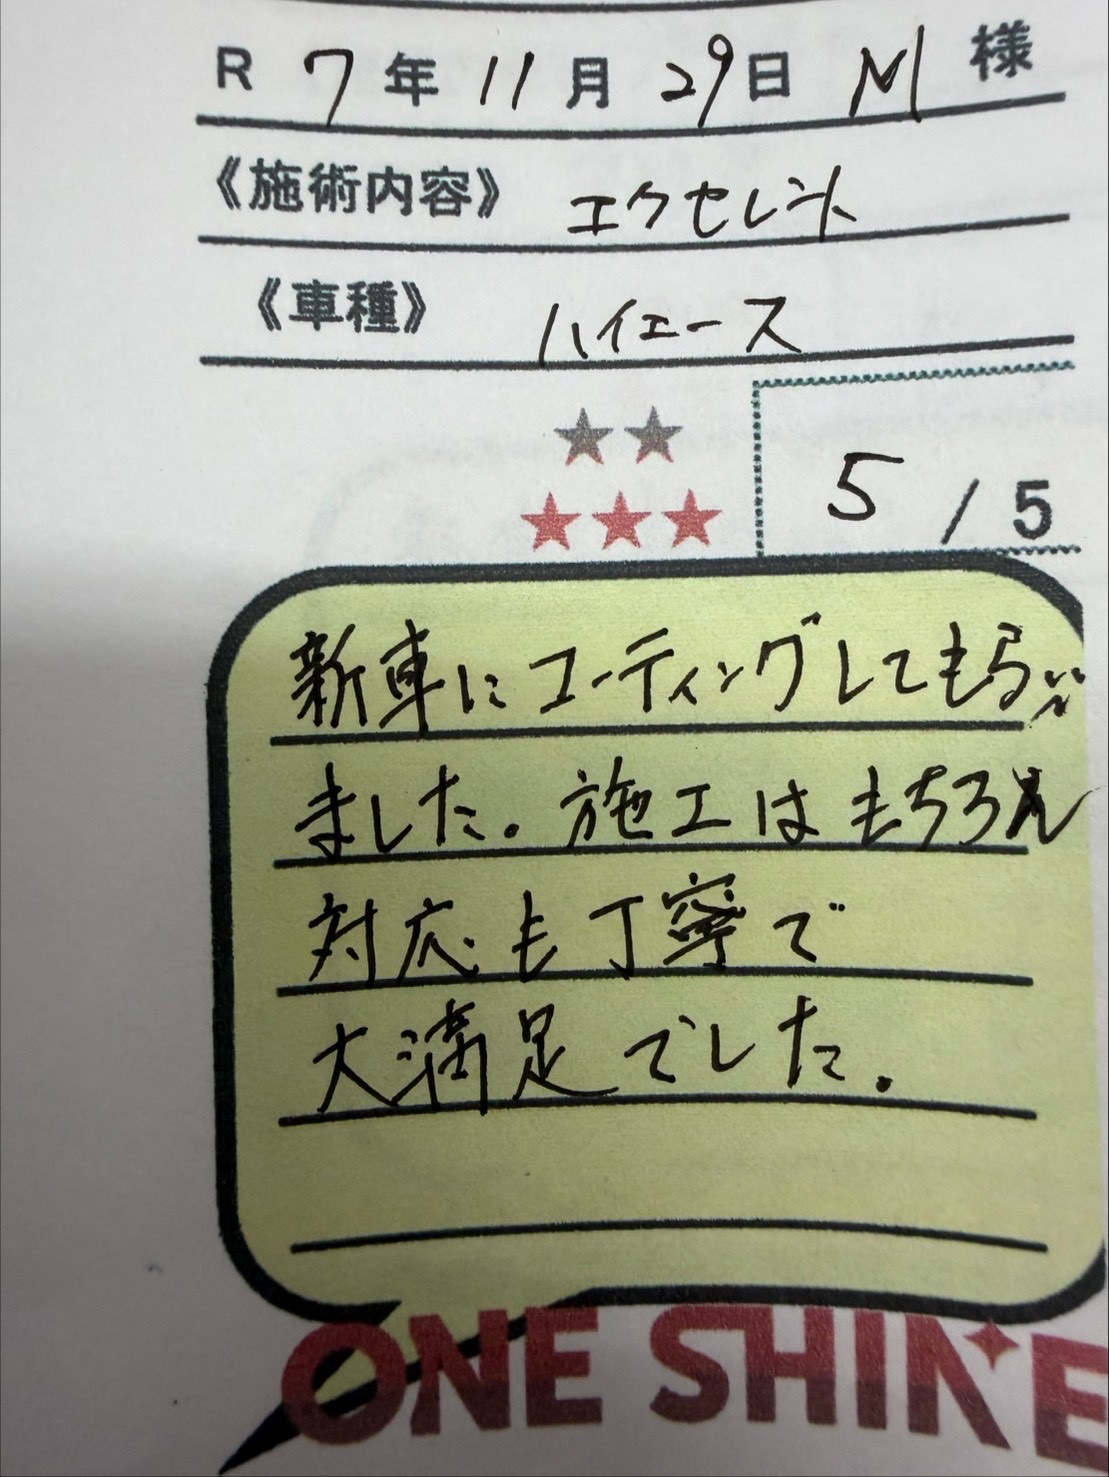 R 7年 11月 29日 M 様
《施術内容》 エクセレント
《車種》 ハイエース
★★
★★★
5 / 5
新車にコーティングしてもらい
ました。施工はもちろん
対応も丁寧で
大満足でした。
ONE SHINE